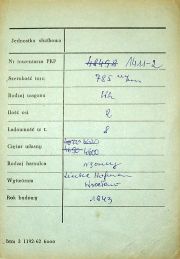 Jednostka służbowa
Nr inwentarza PKP 1411-2
Szerokość toru 785 mm
Rodzaj wagonu Hh
Ilość osi 2
Ładowność w t. 8
Ciężar własny 4600
Rodzaj hamulca ręczny
Wytwórnia Linke Hofman
Wrocław
Rok budowy 1943